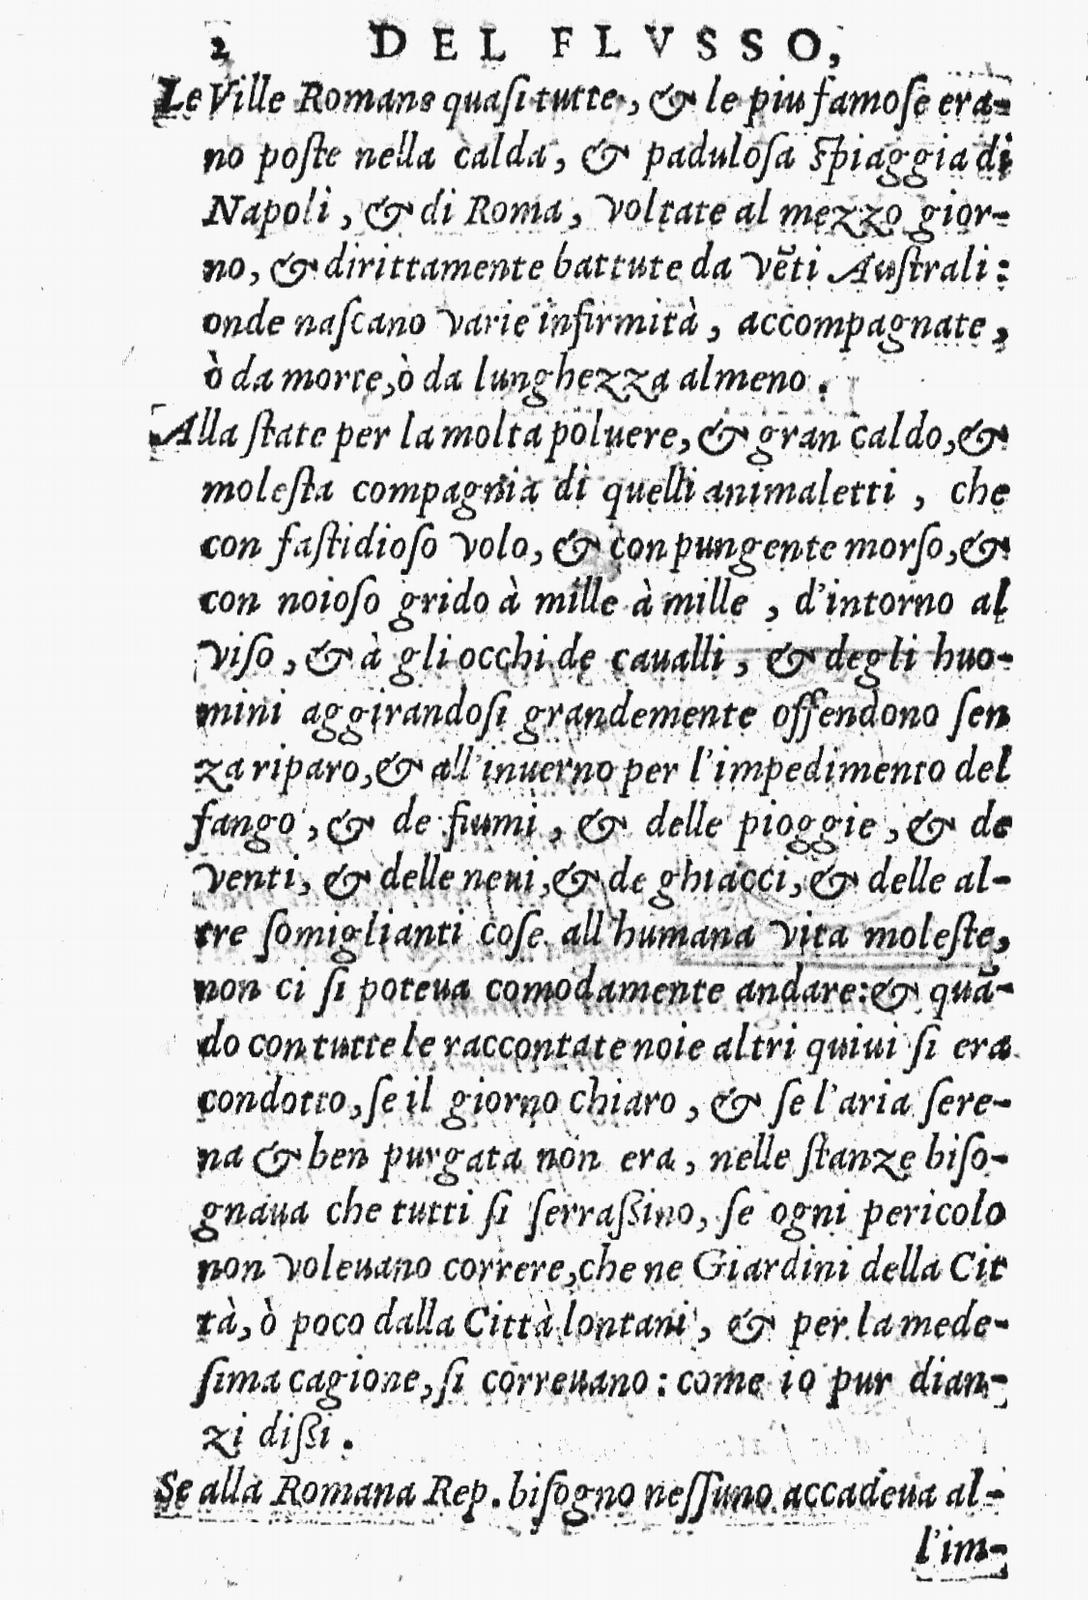 2 DEL FLVSSO,
Le Ville Romane quaſi tutte, & le piu famoſe era-
no poſte nella calda, & paduloſa ſpiaggia di
Napoli, & di Roma, voltate al mezzo gior-
no, & dirittamente battute da vẽti Auſtrali:
onde naſcano varie infirmità, accompagnate,
ò da morte, ò da lunghezza almeno.
Alla ſtate per la molta poluere, & gran caldo, &
moleſta compagnia di quelli animaletti, che
con faſtidioſo volo, & con pungente morſo, &
con noioſo grido à mille à mille, d'intorno al
viſo, & à gli occhi de cavalli, & degli huo-
mini aggirandoſi grandemente offendono ſen
za riparo, & all'inuerno per l'impedimento del
fango, & de fiumi, & delle pioggie, & de
venti, & delle neui, & de ghiacci, & delle al-
tre ſomiglianti coſe all'humana vita moleſte,
non ci ſi poteua comodamente andare: & quã-
do con tutte le raccontate noie altri quiui ſi era
condotto, ſe il giorno chiaro, & ſe l'aria ſere-
na & ben purgata non era, nelle ſtanze biſo-
gnaua che tutti ſi ſerraßino, ſe ogni pericolo
non voleuano correre, che ne Giardini della Cit
tà, ò poco dalla Città lontani, & per la mede-
ſima cagione, ſi correuano: come io pur dian-
zi dißi.
Se alla Romana Rep. biſogno neſſuno accadeua al-
l'im-